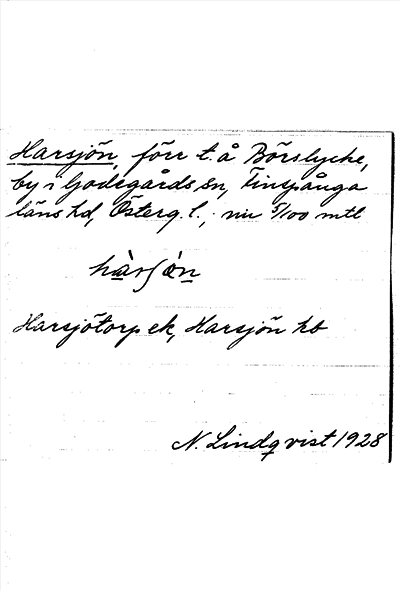 Harsjön, förr t. å Börslycke,
by i Godegårds sn, Finspånga
läns hd, Österg. l.; nu 5/100 mtl
Harsjötorp ek, Harsjön kb
N. Lindqvist 1928